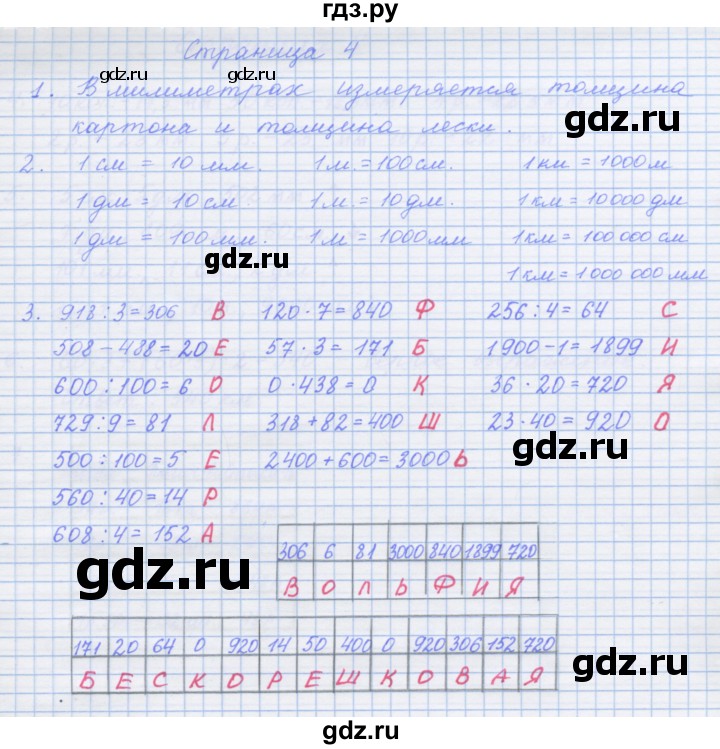 гдз.ру
Страница 4
gdz.ru gdz.ru gdz.ru
1. В милиметрах измеряется толщина
картона и толщина лески.
gdz.ru
2. 1 см = 10 мм. 1 м. = 100 см. 1 км = 1000 м
1 дм = 10 см 1 м. = 10 дм. 1 км = 10 000 дм
gdz.ru gdz.ru
1 дм = 100 мм. 1 м = 1000 мм 1 км = 100 000 см
gdz.ru
1 км = 1 000 000 мм
3. 918 : 3 = 306 В 120 · 7 = 840 Ф 256 : 4 = 64 С
508 – 488 = 20 Е 57 · 3 = 171 Б 1900 – 1 = 1899 И
gdz.ru
600 : 100 = 6 О 0 · 438 = 0 К 36 · 20 = 720 Я
gdz.ru gdz.ru
729 : 9 = 81 Л 318 + 82 = 400 Ш 23 · 40 = 920 О
gdz.ru
500 : 100 = 5 Е 2400 + 600 = 3000 Ь
560 : 40 = 14 Р
608 : 4 = 152 А
306 6 81 3000 840 1899 720
gdz.ru gdz.ru gdz.ru
В О Л Ь Ф И Я
171 20 64 0 920 14 50 400 0 920 306 152 720
gdz.ru
Б Е С К О Р Е Ш К О В А Я
gdz.ru gdz.ru
gdz.ru